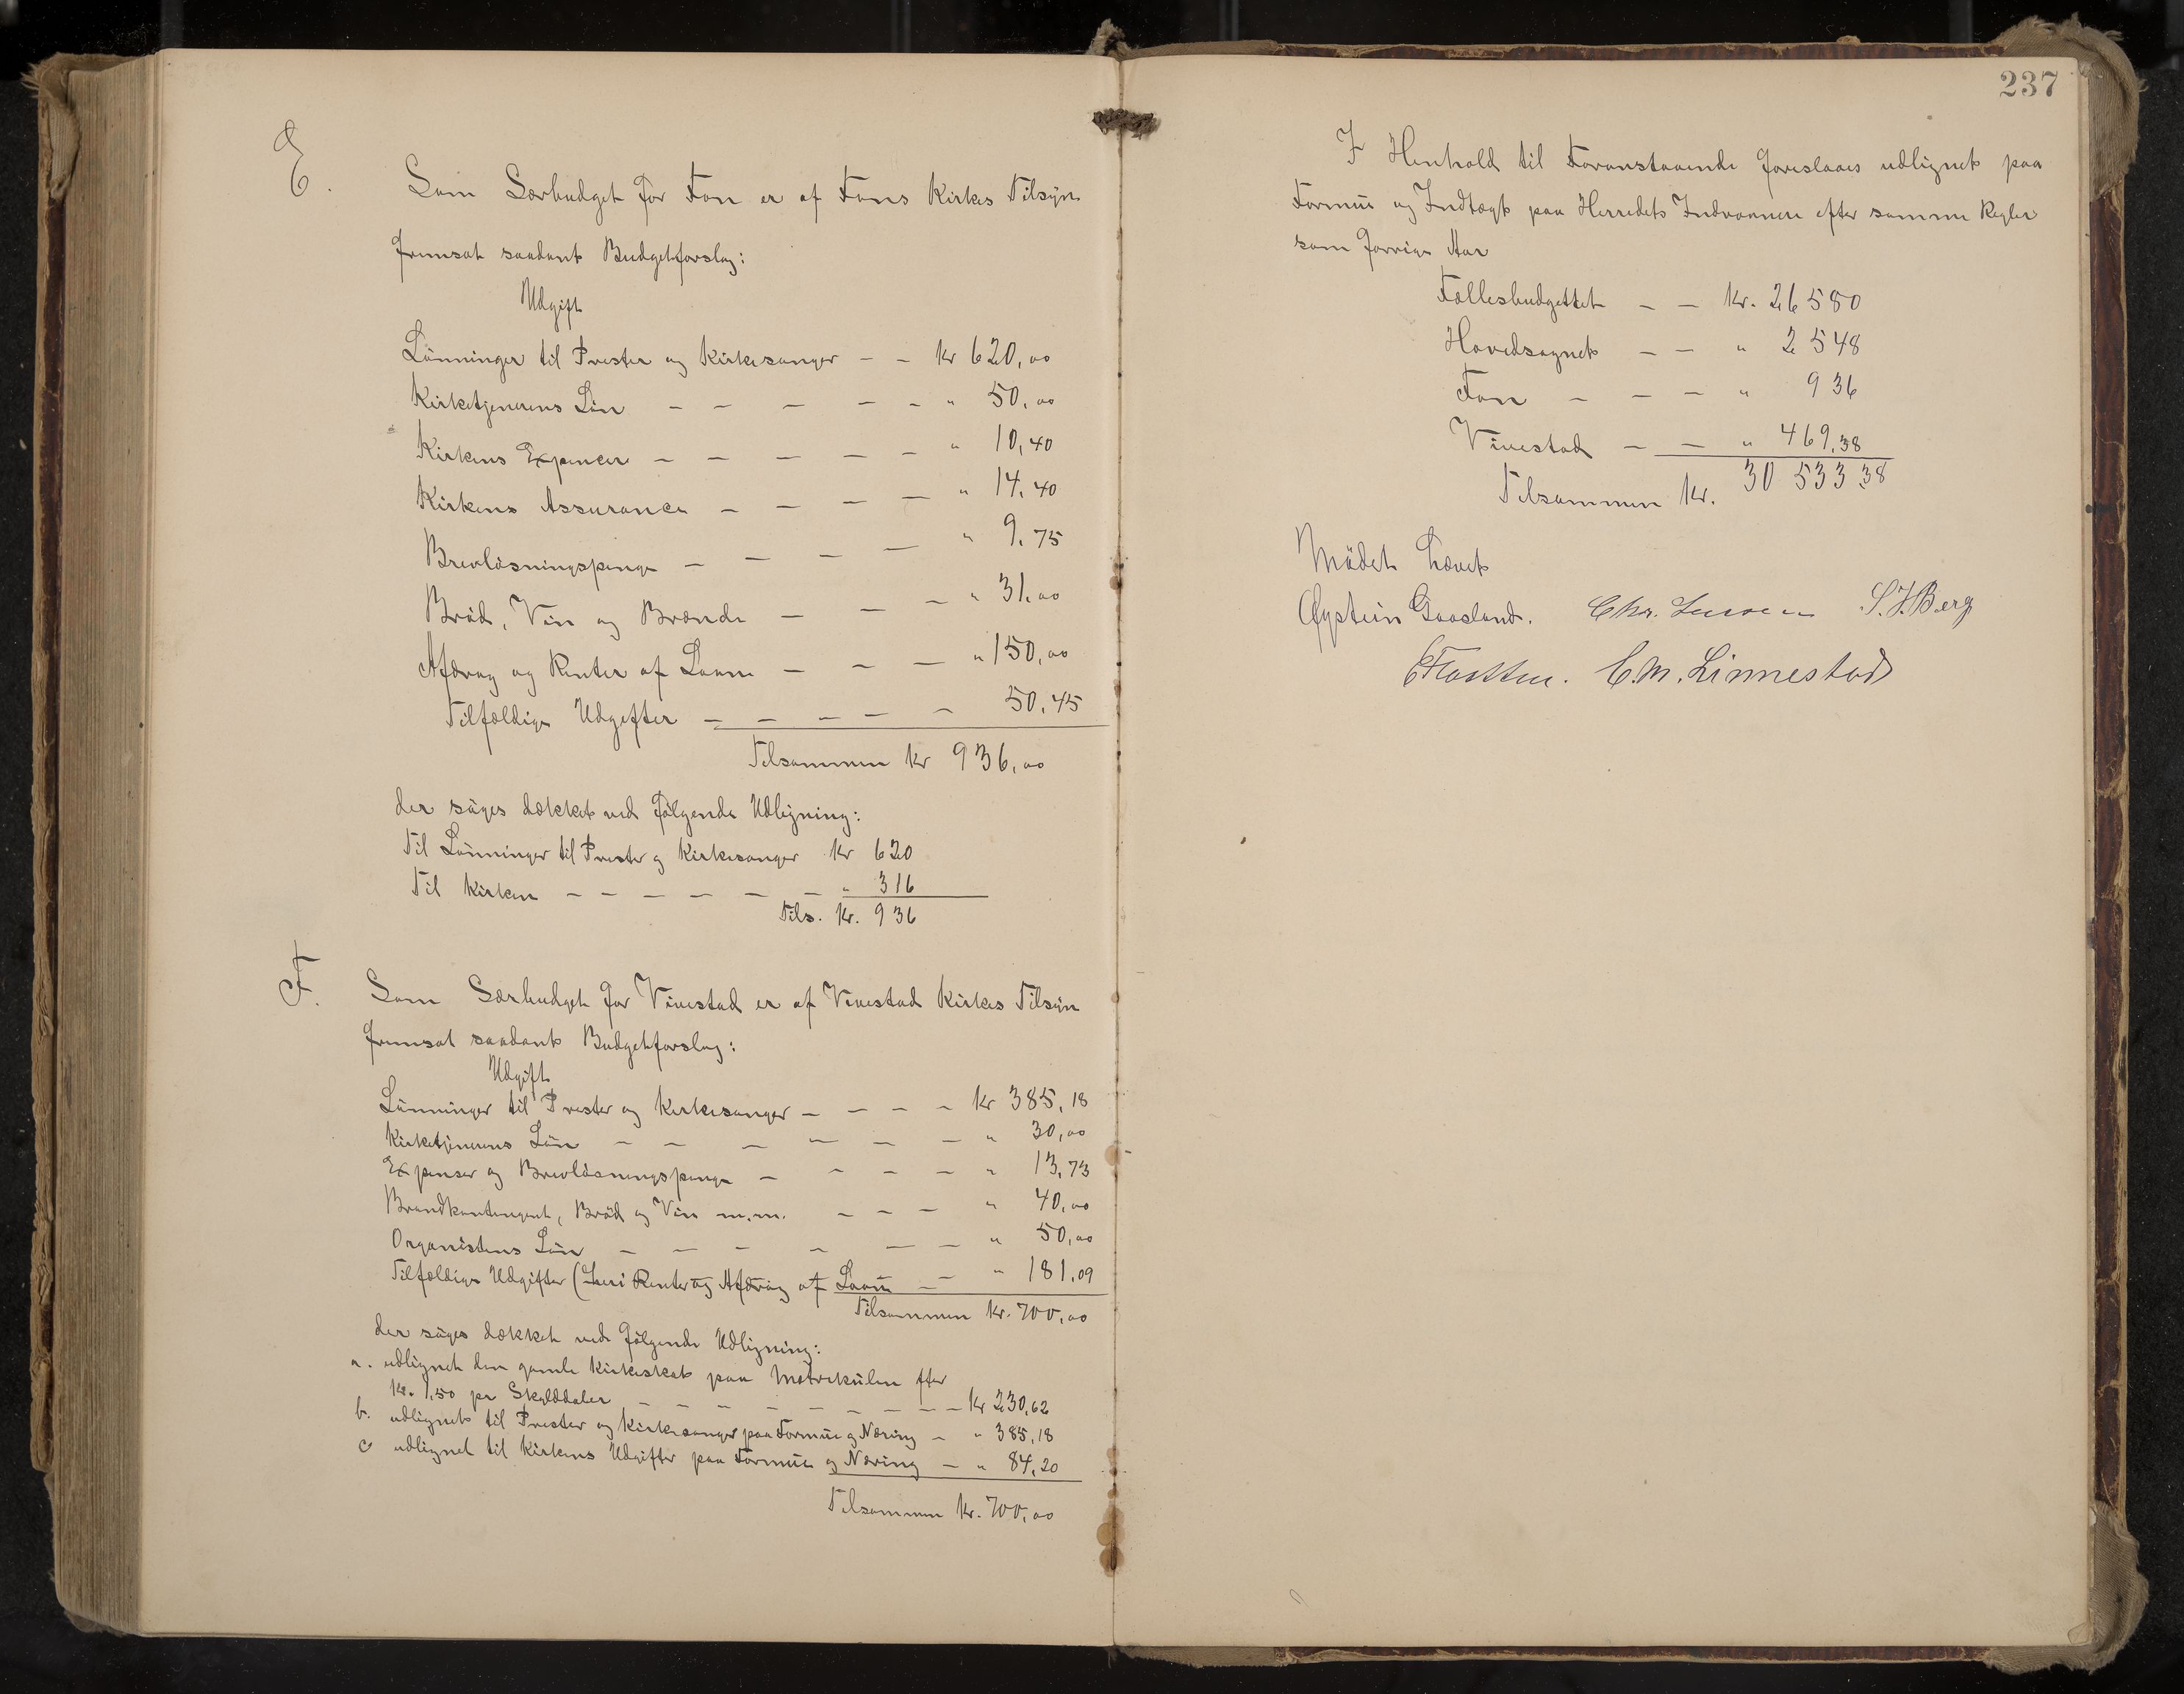 E.
Som Særbudget for Fon er af Fons Kirkes Tilsyn
fremsat saadant Budgetforslag:
Udgift
Lönninger til Prester og Kirkesanger – – Kr 620,00
Kirketjenerens Lön – – – – – " 50,00
Kirkens Expencer – – – – – " 10,40
Kirkens Assurance – – – – " 14,40
Brevlösningspenge – – – – " 9,75
Bröd, Vin og Brænde – – – " 31,00
Afdrag og Renter af Laane – – – " 150,00
Tilfældige Udgifter – – – – – 50,45
Tilsammen Kr 936,00
der söges dækket ved fölgende Udligning:
Til Lönninger til Prester og Kirkesanger Kr 620
Til Kirken – – – – – – " 316
Tils. Kr. 936
F.
Som Særbudget for Vivestad er af Vivestad Kirkes Tilsyn
fremsat saadant Budgetforslag:
Udgift
Lönninger til Prester og Kirkesanger – – – – Kr 385,18
Kirketjenerens Lön – – – – – – " 30,00
Expenser og Brevlösningspenge – – – – " 13,73
Brandkontingent, Bröd og Vin m.m. – – – " 40,00
Organistens Lön – – – – – – " 50,00
Tilfældige Udgifter (heri Renter og Afdrag af Laan – – " 181,09
Tilsammen Kr. 700,00
der söges dækket ved fölgende Udligning:
a. udlignet den gamle Kirkeskat paa Matrikulen efter
Kr. 1,50 pr Skylddaler – – – – – – – – Kr 230,62
b. udlignet til Prester og Kirkesanger paa Formue og Næring – " 385,18
c udlignet til Kirkens Udgifter paa Formue og Næring – " 84,20
Tilsammen Kr. 700,00
237
I Henhold til Foranstaaende foreslaaes udlignet paa
Formue og Indtægt paa Herredets Indvaanere efter samme Regler
som forrige Aar
Fællesbudgettet – – Kr. 26 580
Hovedsognet – – " 2 548
Fon – – – " 936
Vivestad – – " 469,38
Tilsammen Kr. 30 533 38
Mödet hævet
Øystein Gaasland. Chr. S.J. Berg
C.M. Linnestad